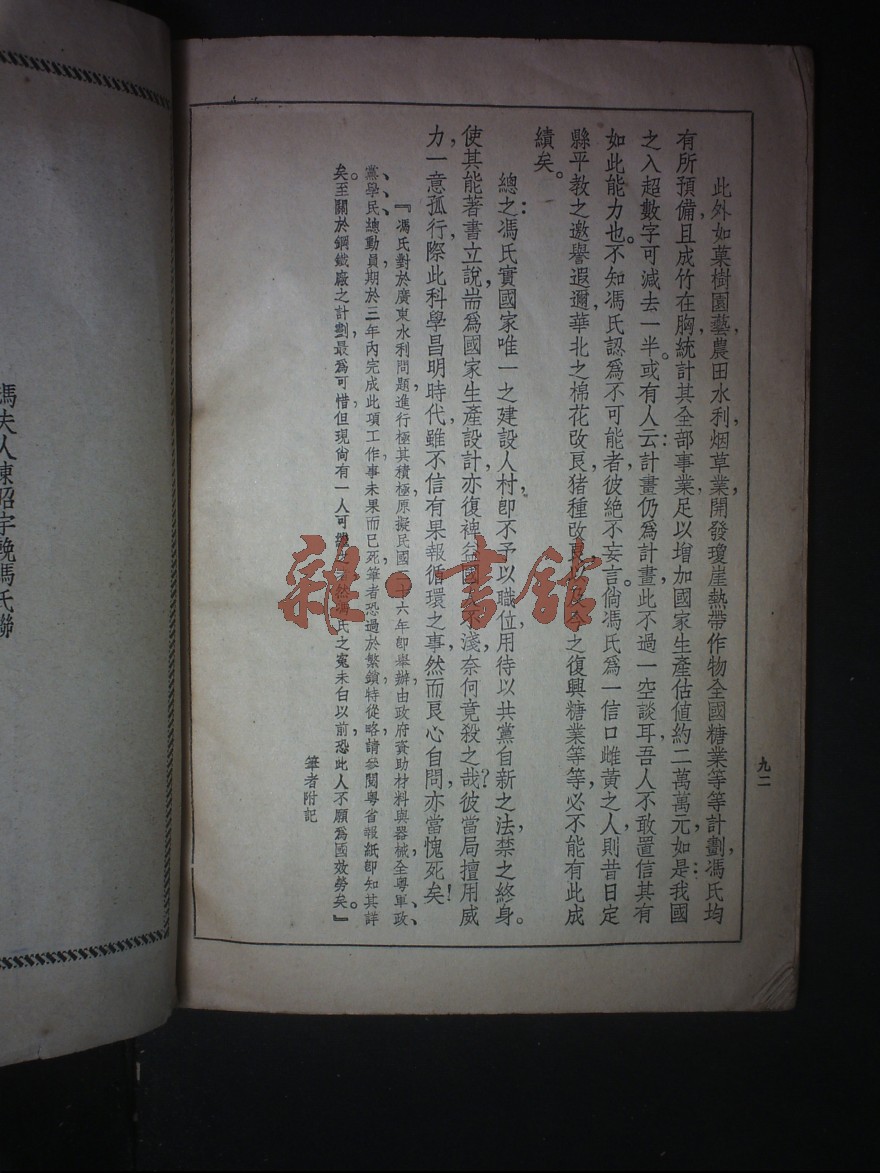 九二
此外如菓樹園藝,農田水利,烟草業,開發瓊崖熱帶作物,全國糖業等等計劃,馮氏均
有所預備,且成竹在胸,統計其全部事業,足以增加國家生產估值約二萬萬元,如是:我國
之入超數字可減去一半。或有人云:計畫仍爲計畫,此不過一空談耳,吾人不敢置信其有
如此能力也。不知馮氏認爲不可能者,彼絕不妄言。倘馮氏爲一信口雌黃之人,則昔日定
縣平教之邀譽遐邇,華北之棉花改良,猪種改良,以及今之復興糖業等等,必不能有此成
績矣。
總之:馮氏實國家唯一之建設人村,卽不予以職位,用待以共黨自新之法,禁之終身。
使其能著書立說,耑爲國家生產設計,亦復裨益國不淺,奈何竟殺之哉?彼當局擅用威
力,一意孤行,際此科學昌明時代,雖不信有果報循環之事,然而良心自問,亦當愧死矣!
『馮氏對於廣東水利問題,進行極其積極,原擬民國二十六年卽舉辦,由政府資助材料與器械,全粤軍、政、
黨、學、民、總動員,期於三年內完成此項工作,事未果而已死,筆者恐過於繁鎖,特從略,請參閱粤省報紙卽知其詳
矣。至關於鋼鐵廠之計劃,最爲可惜,但現尙有一人可繼,然馮氏之寃未白以前,恐此人不願爲國效勞矣。』
筆者附記
馮夫人陳昭宇輓馮氏聯